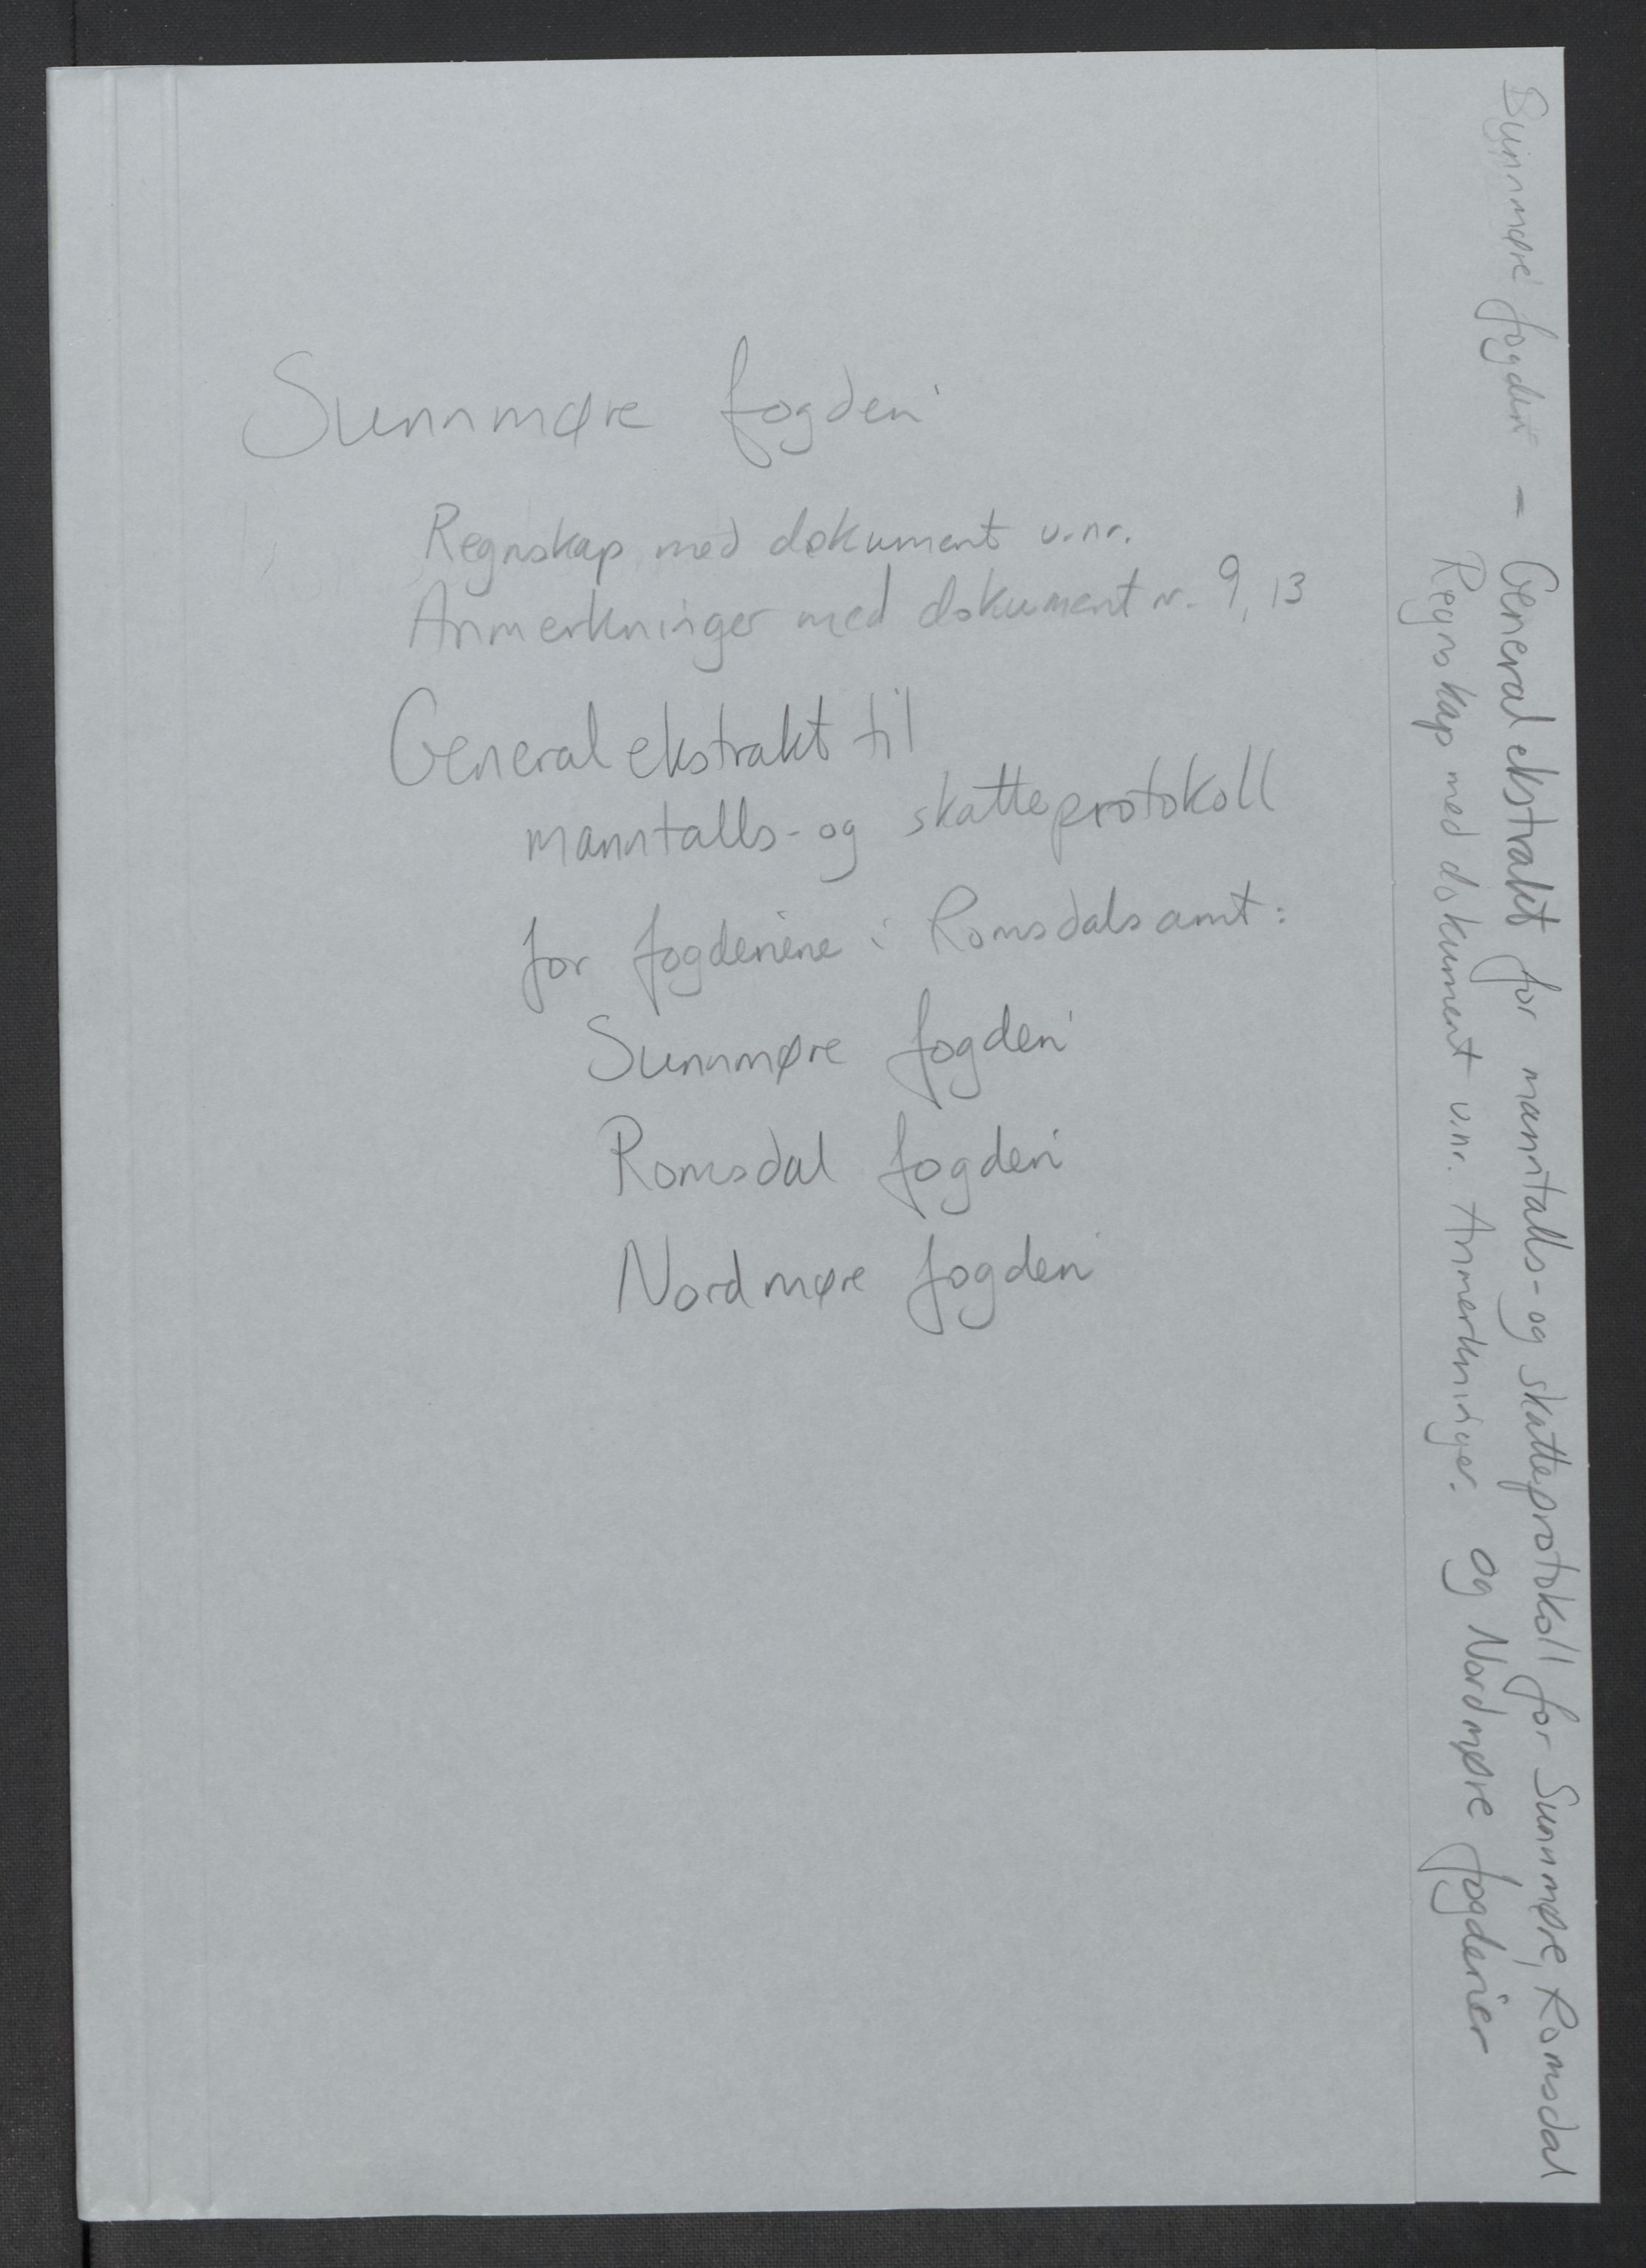 Sunnmøre fogderi
Regnskap med dokument u.nr.
Anmerkninger med dokument nr. 9, 13
Generalekstrakt til
manntalls- og skatteprotokoll
for fogderiene i Romsdals amt:
Sunnmøre fogderi
Romsdal fogderi
Nordmøre fogderi
Sunnmøre fogderi - Generalekstrakt for manntalls- og skatteprotokoll for Sunnmøre, Romsdal
Regnskap med dokument u.nr. Anmerkninger. og Nordmøre fogderier